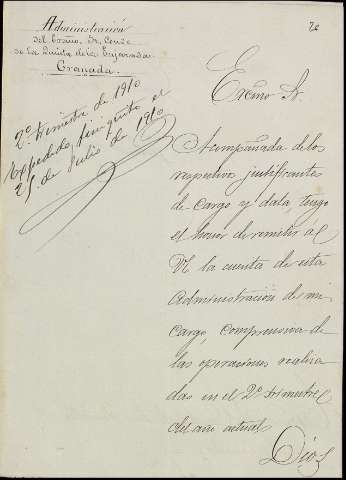 Administración
del Excmo. Sr. Conde
de la Quinta de la Enjarada
Granada.
2º trimestre de 1910
Expedido, finiquito en
25 de Julio de 1910
Excmo Sr.
Acompañada de los
respectivos justificantes
de Cargo y data, tengo
el honor de remitir a
V. la cuenta de esta
Administración de mi
Cargo, comprensiva de
las operaciones realiza
das en el 2º trimestre
del año actual.
Dios